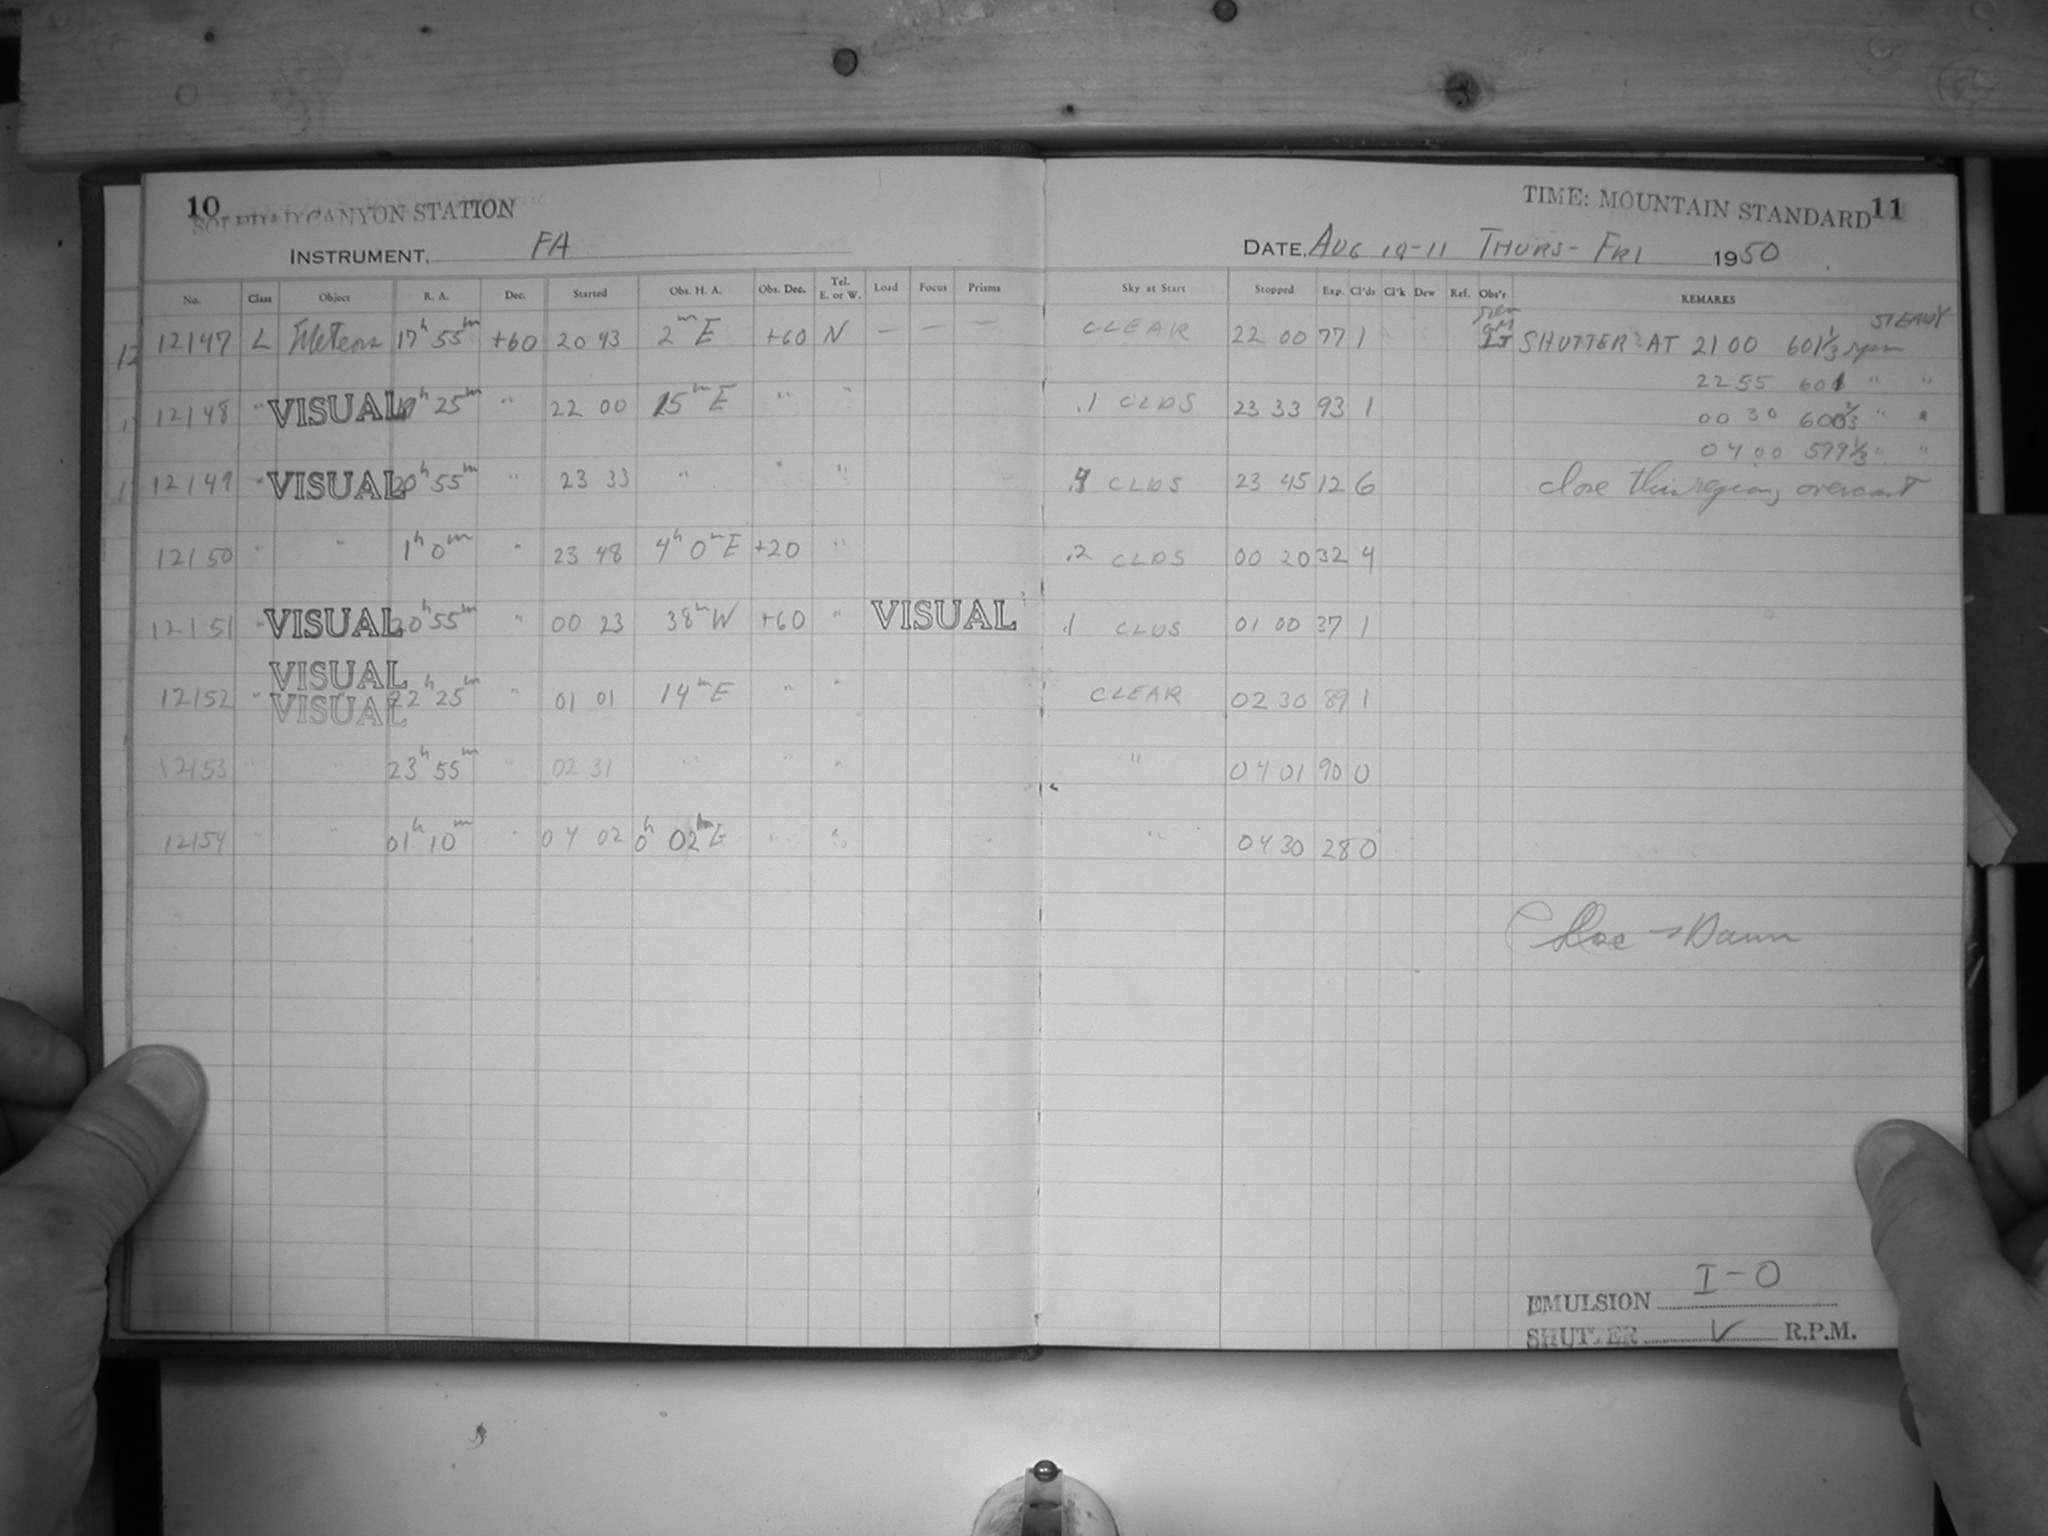 10
SOLEDAD CANYON STATION
TIME: MOUNTAIN STANDARD 11
INSTRUMENT, FA
DATE, AUG 10-11 THURS - FRI 1950
No. Class Object R. A. Dec. Started Obs. H. A. Obs. Dec. Tel. E. or W. Load Focus Prisms Sky at Start Stopped Exp. Cl'ds Cl'k Dew Ref. Obs'r REMARKS
12147 L Meteors 17h 55m +60 20 43 2m E +60 N — — — CLEAR 22 00 77 1 GM LJ SHUTTER AT 21 00 601 1/3 rpm STEADY
22 55 601 " "
12148 " VISUAL 25m " 22 00 15m E " " .1 CLDS 23 33 93 1 00 30 600 2/3 " "
04 00 599 1/3 " "
12149 " VISUAL 20h 55m " 23 33 " " " CLDS 23 45 12 6 close this region, overcast
12150 " " 1h 0m " 23 48 4h 0m E +20 " .2 CLDS 00 20 32 4
12151 " VISUAL 20h 55m " 00 23 38m W +60 " VISUAL .1 CLDS 01 00 37 1
VISUAL
12152 " VISUAL 22h 25m " 01 01 14m E " " CLEAR 02 30 89 1
12153 " " 23h 55m " 02 31 " " " " 04 01 90 0
12154 " " 01h 10m " 04 02 0h 02m E " " " 04 30 28 0
Close → Dawn
I-O
EMULSION
SHUTTER ✓ R.P.M.